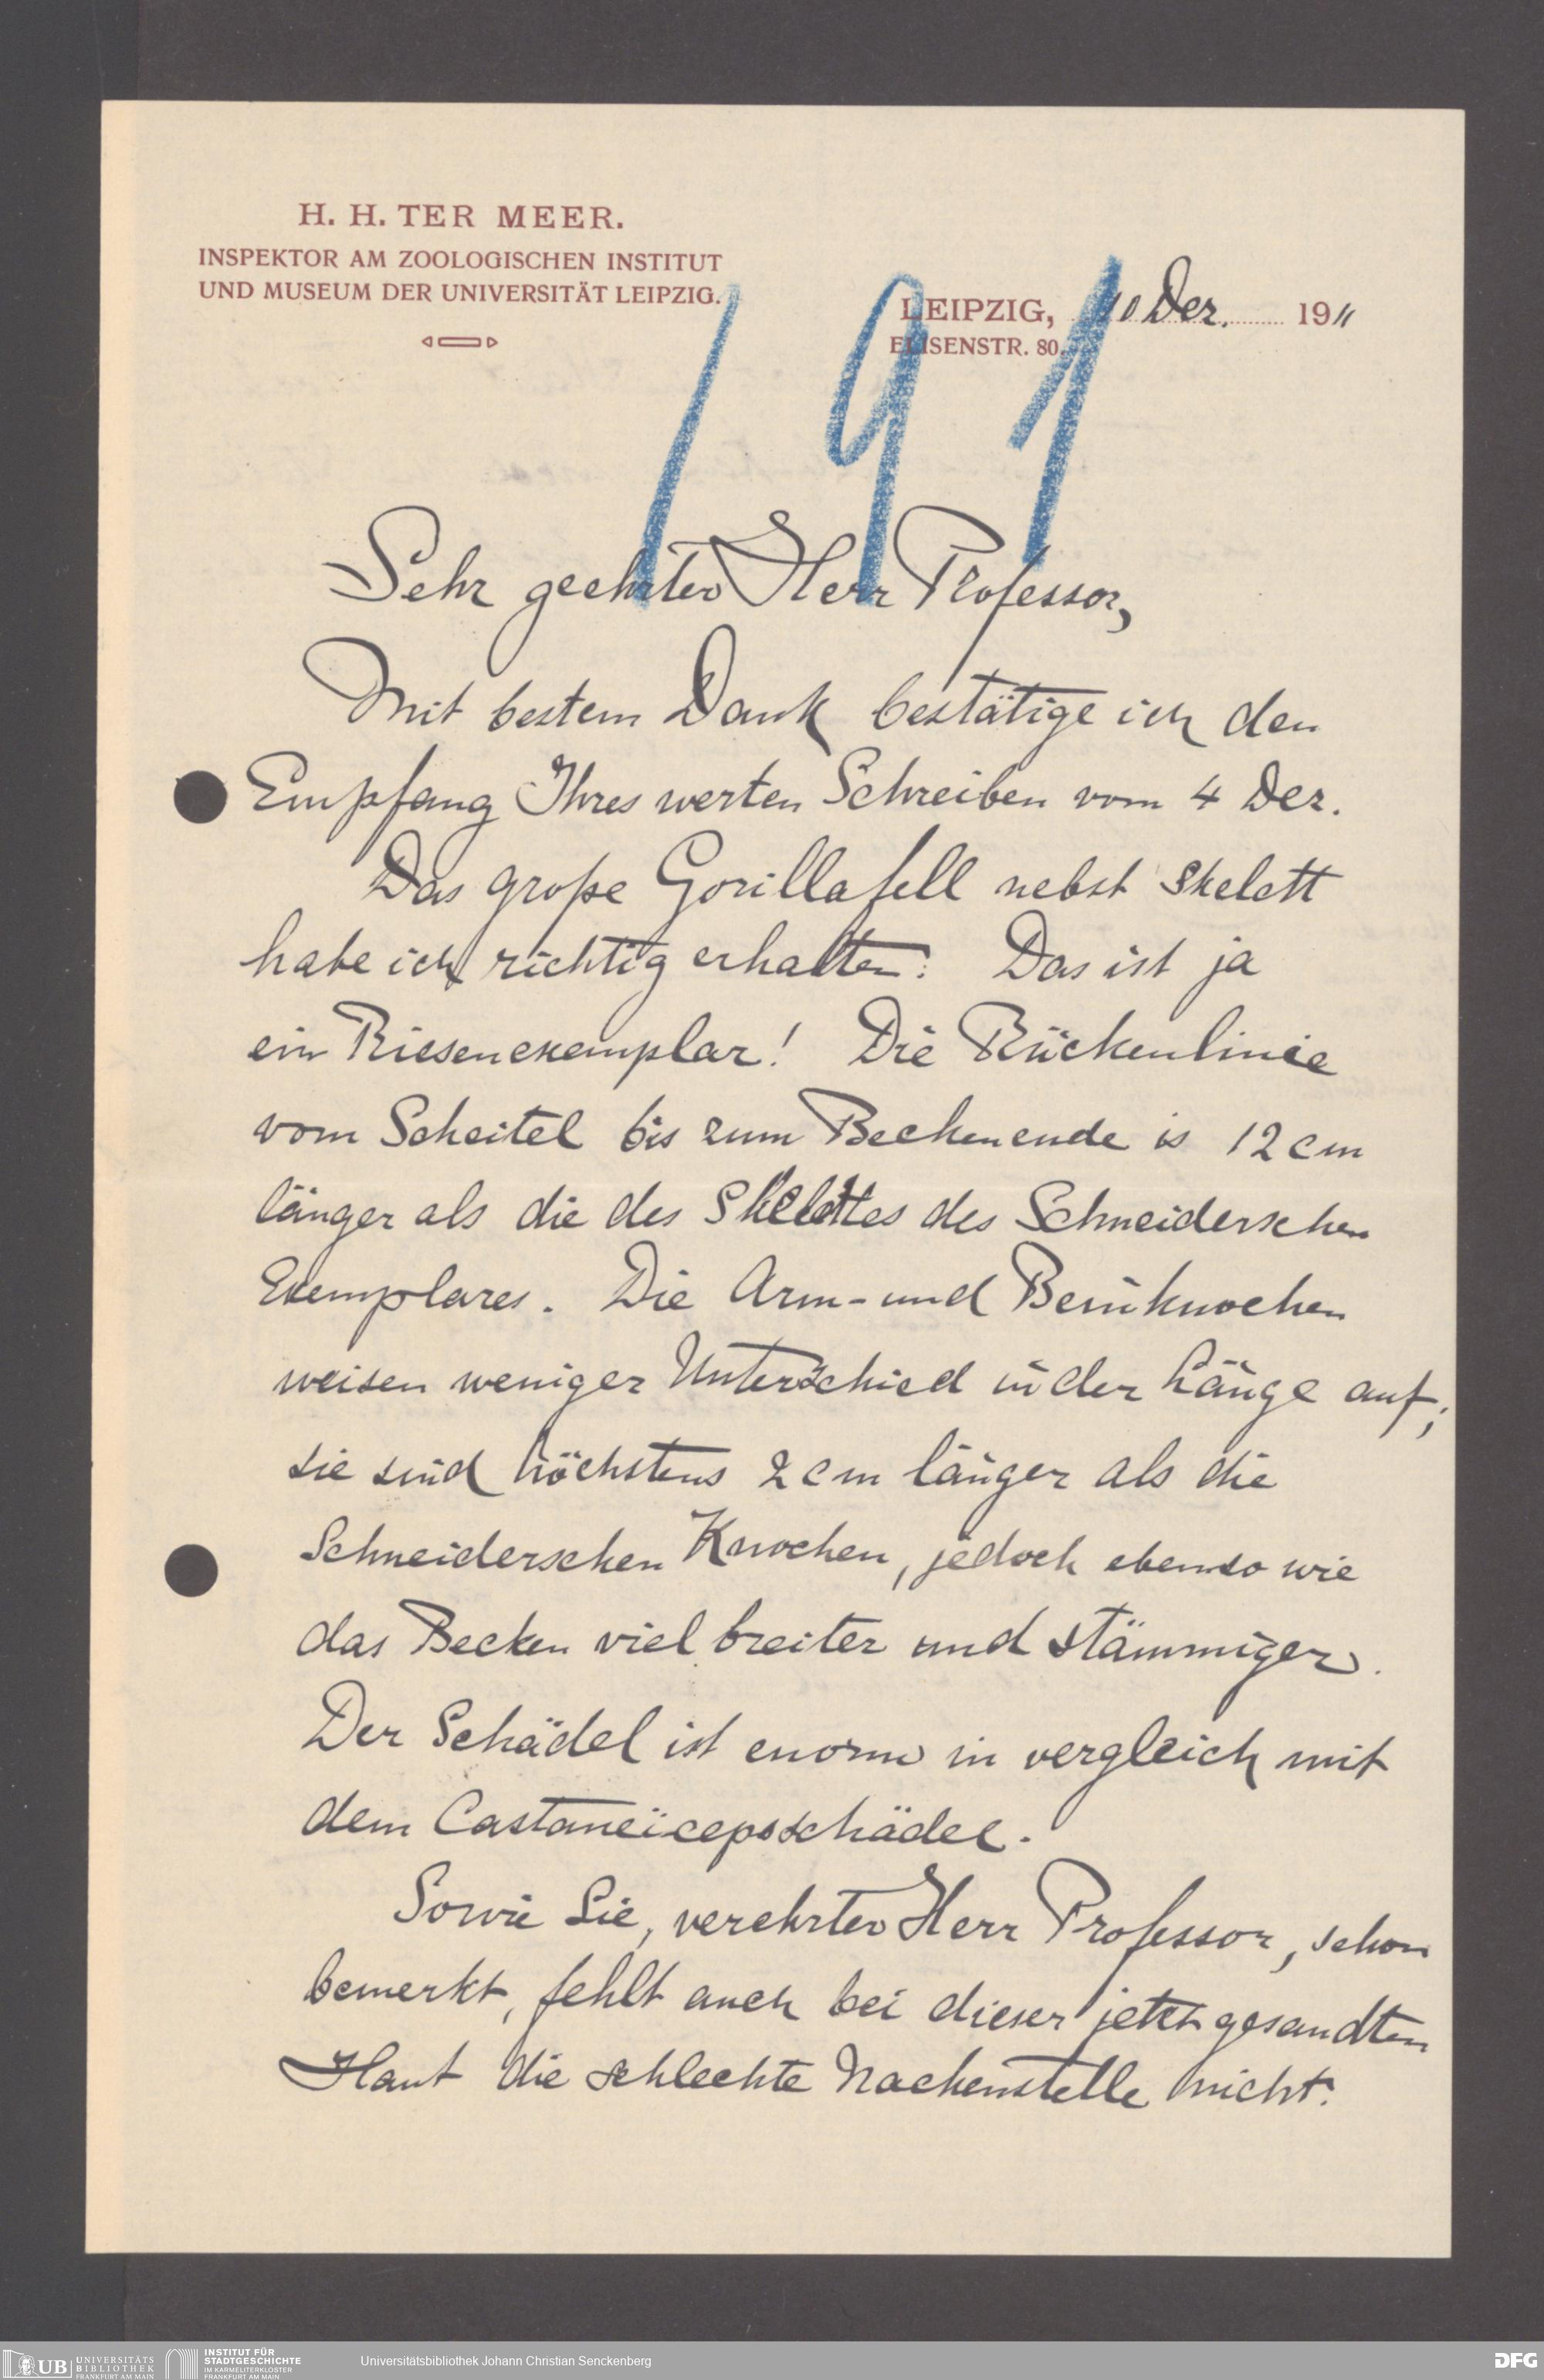 H. H. TER MEER.
INSPEKTOR AM ZOOLOGISCHEN INSTITUT
UND MUSEUM DER UNIVERSITÄT LEIPZIG.
LEIPZIG, 10 Dez. 1911
ELISENSTR. 80.
191
Sehr geehrter Herr Professor,
Mit bestem Dank bestätige ich den
Empfang Ihres werten Schreiben vom 4 Dez.
Das große Gorillafell nebst Skelett
habe ich richtig erhalten. Das ist ja
ein Riesenexemplar! Die Rückenlinie
vom Scheitel bis zum Beckenende is 12 cm
länger als die des Skelettes des Schneiderschen
Exemplares. Die Arm- und Beinknochen
weisen weniger Unterschied in der Länge auf;
sie sind höchstens 2 cm länger als die
Schneiderschen Knochen, jedoch ebenso wie
das Becken viel breiter und stämmiger.
Der Schädel ist enorm in vergleich mit
dem Castaneïcepsschädel.
Sowie Sie, verehrter Herr Professor, schon
bemerkt, fehlt auch bei dieser jetzt gesandten
Haut die schlechte Nackenstelle nicht.
UB UNIVERSITÄTS
BIBLIOTHEK
FRANKFURT AM MAIN
INSTITUT FÜR
STADTGESCHICHTE
IM KARMELITERKLOSTER
FRANKFURT AM MAIN
Universitätsbibliothek Johann Christian Senckenberg
DFG